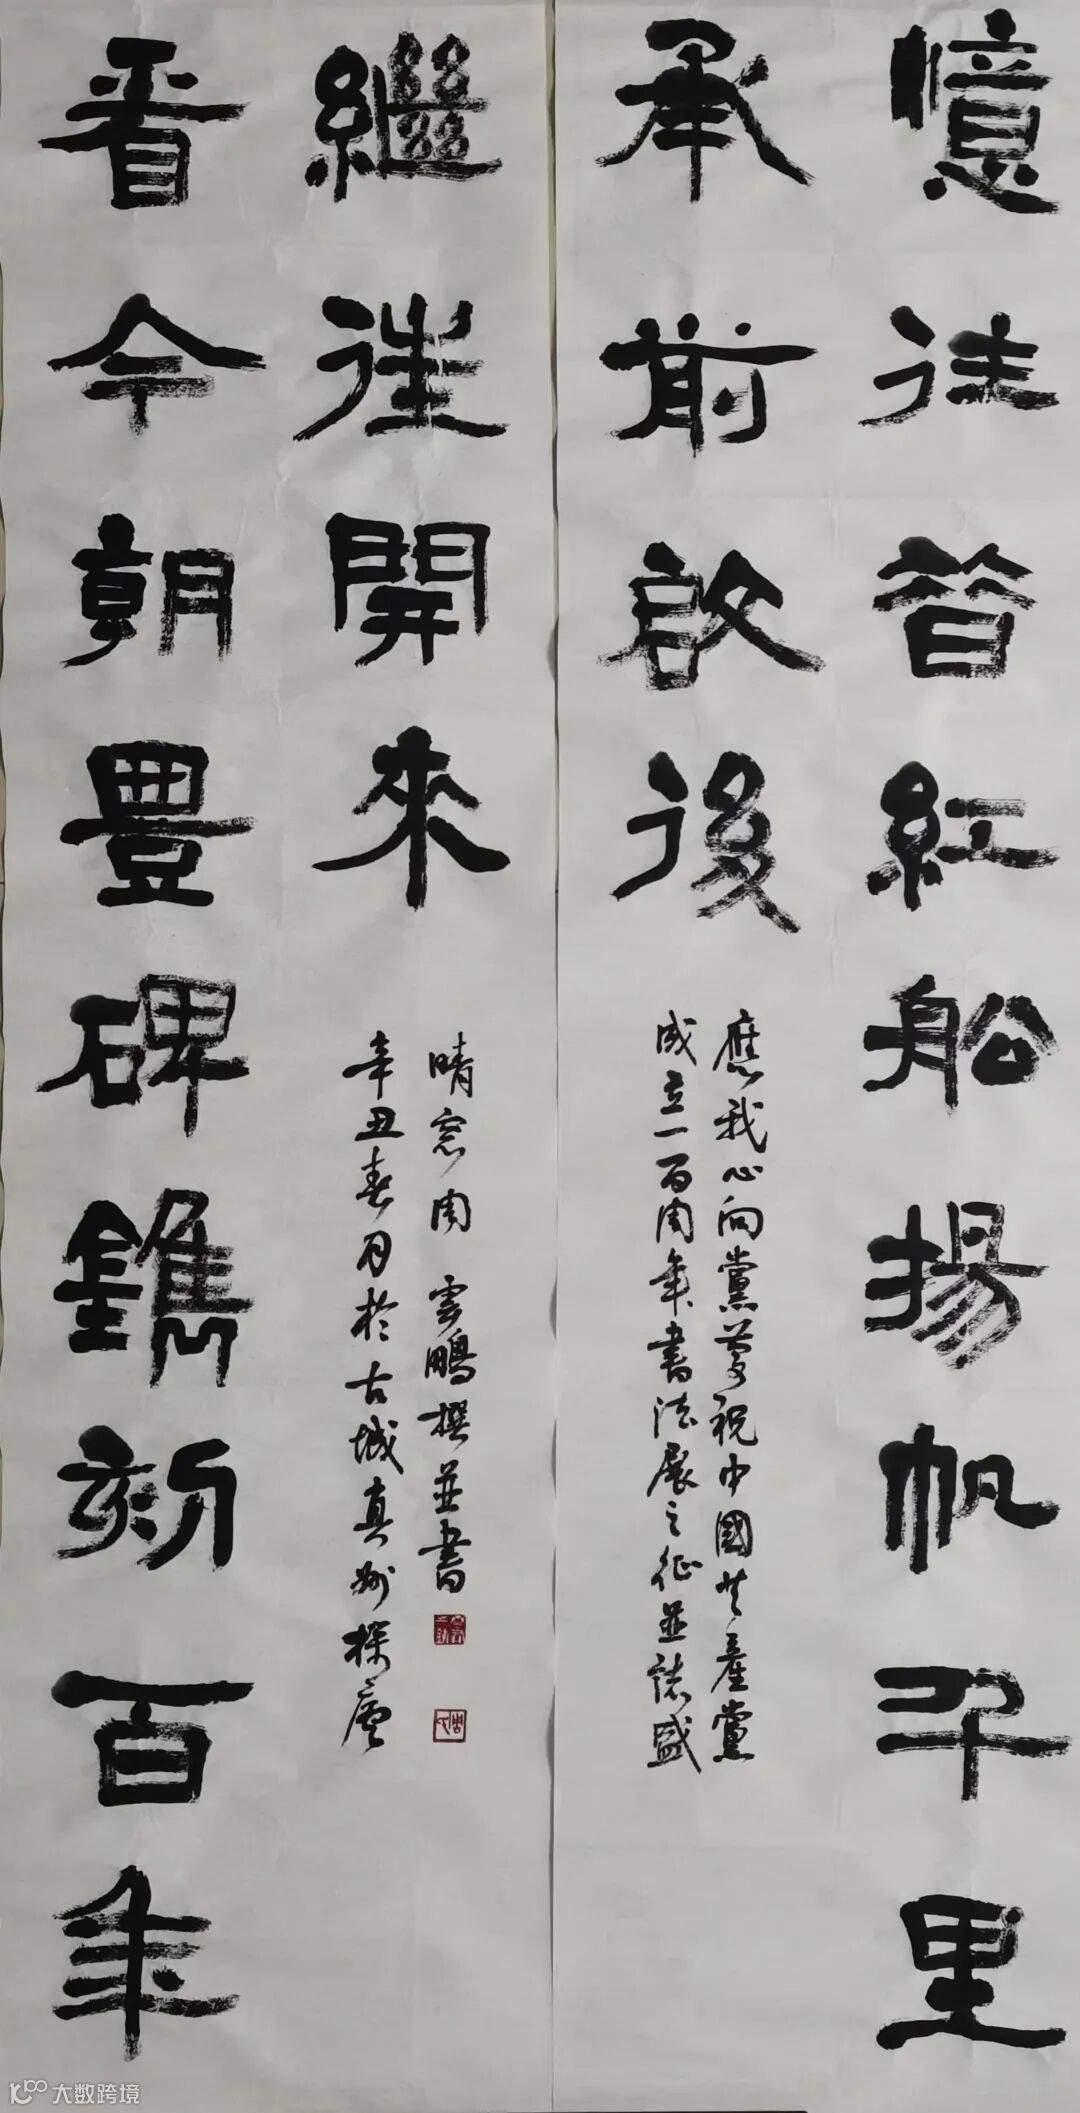 憶往昔紅船揚帆千里
承前啟後
應我心向黨慶祝中國共產黨
成立一百周年書法展之征並誌盛
看今朝豊碑鐫刻百年
繼往開來
晴窓周雲鵬撰並書
辛丑春月於古城真州廬
大数跨境